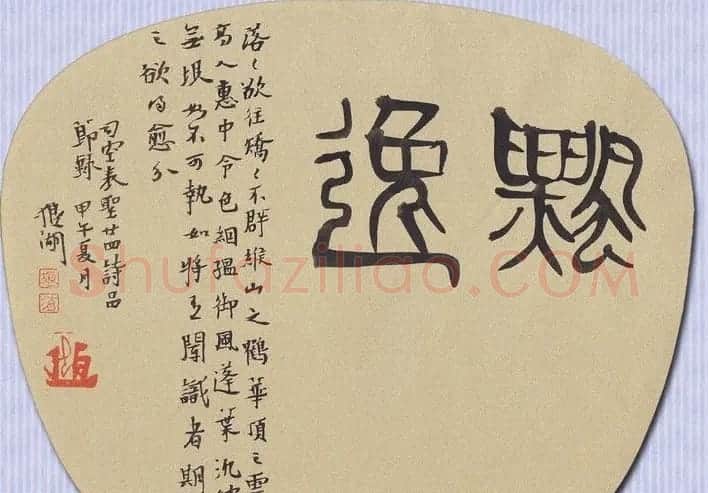 飄逸
落々欲往矯々不群緱山之鶴華頂之雲
高人惠中令色絪縕御風蓬葉汎彼
無垠如不可執如將有聞識者期
之欲得愈分
司空表聖廿四詩品
節録 甲午夏月
湖
Shufaziliao.COM